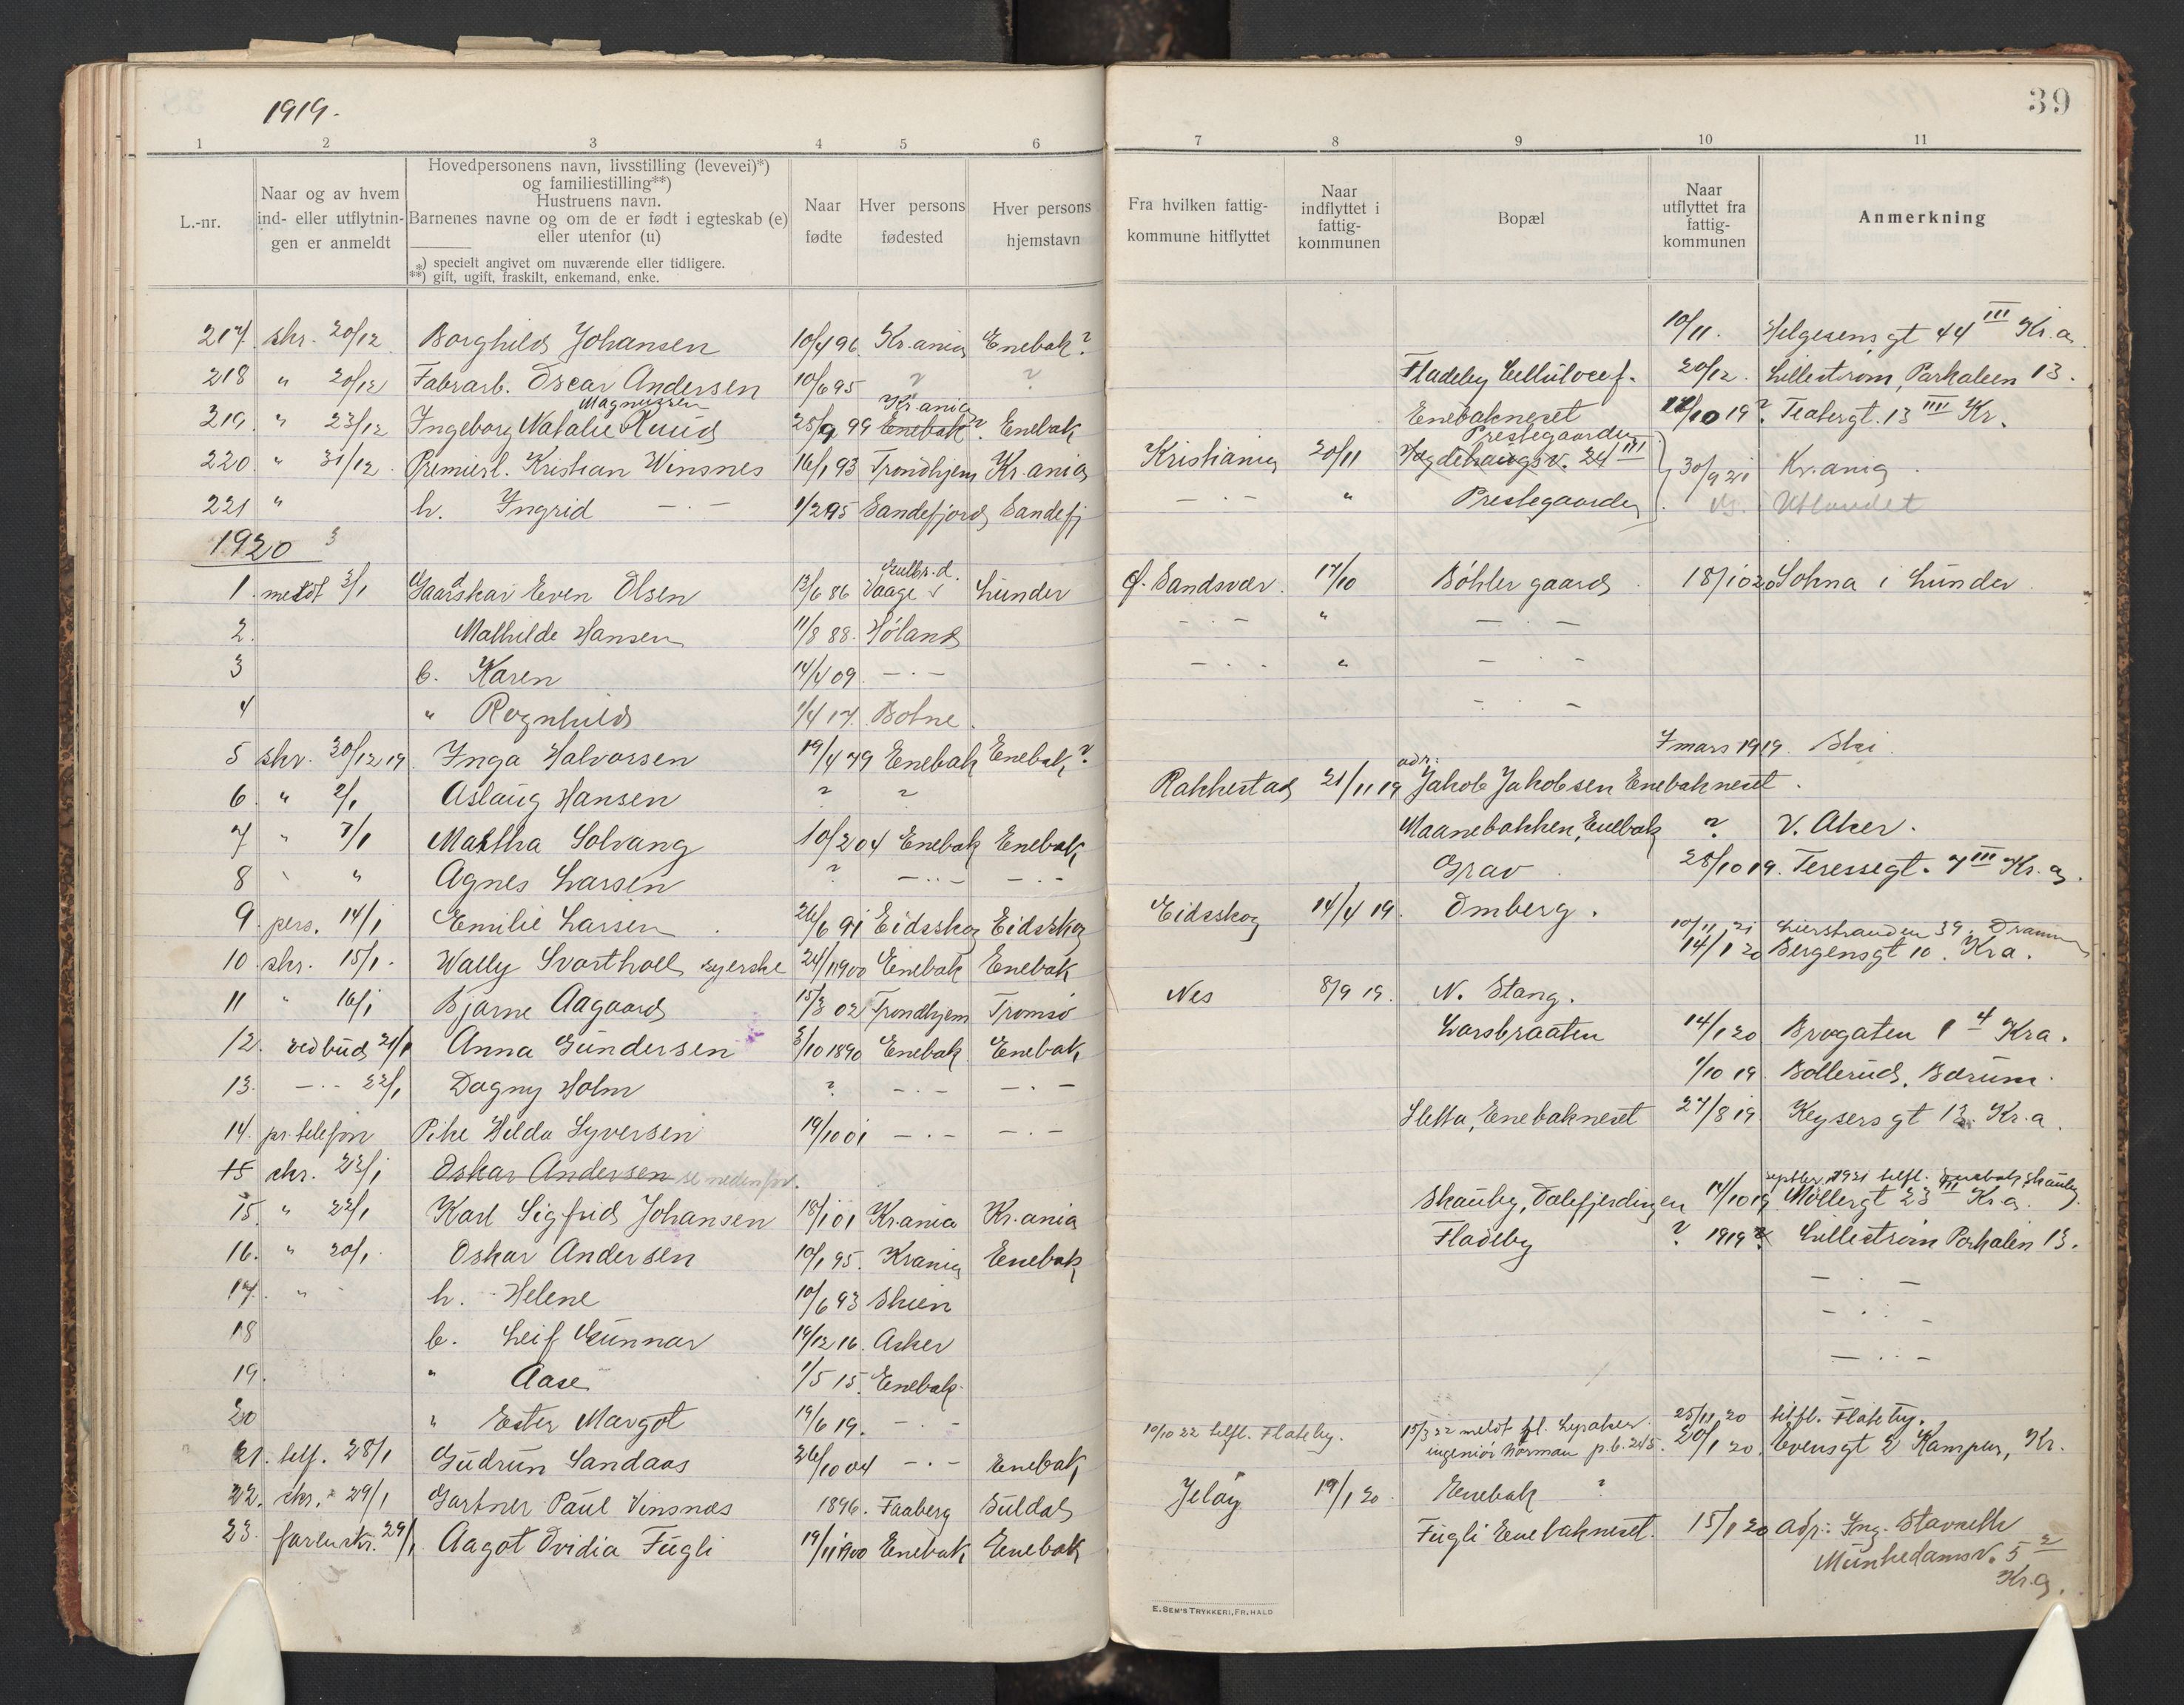 1919.
39
1 2 3 4 5 6 7 8 9 10 11
L.-nr.
Naar og av hvem
ind- eller utflytnin-
gen er anmeldt
Hovedpersonens navn, livsstilling (levevei)*)
og familiestilling**)
Hustruens navn.
Barnenes navne og om de er født i egteskab (e)
eller utenfor (u)
*) specielt angivet om nuværende eller tidligere.
**) gift, ugift, fraskilt, enkemand, enke.
Naar
fødte
Hver persons
fødested
Hver persons
hjemstavn
Fra hvilken fattig-
kommune hitflyttet
Naar
indflyttet i
fattig-
kommunen
Bopæl
Naar
utflyttet fra
fattig-
kommunen
Anmerkning
217. skr. 20/12 Borghild Johansen 10/4 96 Kr.ania Enebak? 10/11. Helgesens gt 44 III Kr.a.
218 " 20/12 Fabrarb. Oscar Andersen 10/6 95 ? ? Fladeby Cellulosef. 20/12. Lillestrøm, Parkaleen 13.
Magnussen Kr.ania
219. " 23/12 Ingeborg Natalie Ruud 25/9 99 Enebak ?. Enebak Enebakneset 10 19? Teatergt. 13 III Kr.
Prestegaarden
220. " 31/12. Premierl. Kristian Winsnes 16/1 93 Trondhjem Kr.ania Kristiania 20/11 24 III 30/9 21 Kr.ania.
221 " h. Ingrid — . — 1/2 95 Sandefjord Sandefj — . — " Prestegaarden Utlandet
1920
Gulbr.d.
1. meldt 3/1 Gaardskar Even Olsen 13/6 86 Vaage Lunder Ø. Sandsvær. 17/10 Bøhler gaard 18/10 20 Sokna i Lunder.
2. Mathilde Hansen 11/8 88. Høland — . — " — . —
3 b. Karen 14/4 09. — . — — . - " — . —
4 " Ragnhild 1/4 17. Botne. - . -
5 skr. 30/12 19 Inga Halvorsen 19/4 79 Enebak Enebak? 7 mars 1919. Ski.
adr:
6. " 2/1 Aslaug Hansen ? ? Rakkestad 21/11 19 Jakob Jakobsen Enebakneset.
7 " 7/1 Martha Solvang 10/2 04 Enebak Enebak Maanebakken, Enebak ? V. Aker.
8 " " Agnes Larsen ? — . — — . — Grav. 28/10 19. Teressegt. 7 III Kr.a.
9. pers. 14/1 Emilie Larsen. 26/6 91 Eidsskog Eidsskog Eidsskog 14/4 19. Omberg. 10/11 21 Lierstranden 39. Drammen
10. skr. 15/1. Wally Svartholt, syerske 24/1 1900 Enebak Enebak 14/1 20 Bergensgt 10. Kr.a.
11 " 16/1 Bjarne Aagaard 15/3 02 Trondhjem Tromsø Nes 8/9 19. N. Stang.
12. ved bud 21/1 Anna Gundersen 3/10 1890 Enebak Enebak Larsbraaten 14/1 20 Brogaten 1 4 Kra.
13. — . - 22/1 Dagny Holm ? — . — — . — 1/10 19. Ballerud, Bærum.
14. pr. telefon Pike Hilda Syversen 19/10 01 — . — — . — Sletta, Enebakneset 27/8 19 Keysers gt 13. Kr.a.
15 skr. 23/1 Oskar Andersen se nedenfor.
septbr. 1921 tilfl. Enebak, Skauby
15. " 22/1 Karl Sigfrid Johansen 18/1 01 Kr.ania Kr.ania Skauby, Dalefjerdingen 17/10 19 Møllergt 23 III Kr.a.
16. " 20/1. Oskar Andersen 10/1 95. Kr.ania Enebak Fladeby ?. 1919? Lillestrøm Parkalen 13.
17. " - h. Helene 10/6 93 Skien — . —
18 b. Leif Gunnar 14/12 16. Asker — . —
19. " Aase 1/5 15. Enebak — . —
20 " Ester Margot 14/6 19. — . —
10/10 22 tilfl. Flateby. 15/3 22 meldt fl. Lysaker 25/11 20 tilfl. Flateby.
21. telf. 28/1 Gudrun Sandaas 26/10 04 — . — Enebak ingeniør Norman p.b. 245. 20/1 20. Evensgt 2 Kampen, Kr.
22. skr. 29/1 Gartner Paul Vinsnæs 1896. Faaberg Suldal Jeløy 19/1 20. Enebak ?
23. forlusk. 29/1. Aagot Ovidia Fugli 19/11 1900 Enebak Enebak Fugli Enebakneset. 15/1 20 Adr: Ing. Stavneth
Munkedamsv. 5 2
Kr.a.
E. SEM'S TRYKKERI, FR.HALD